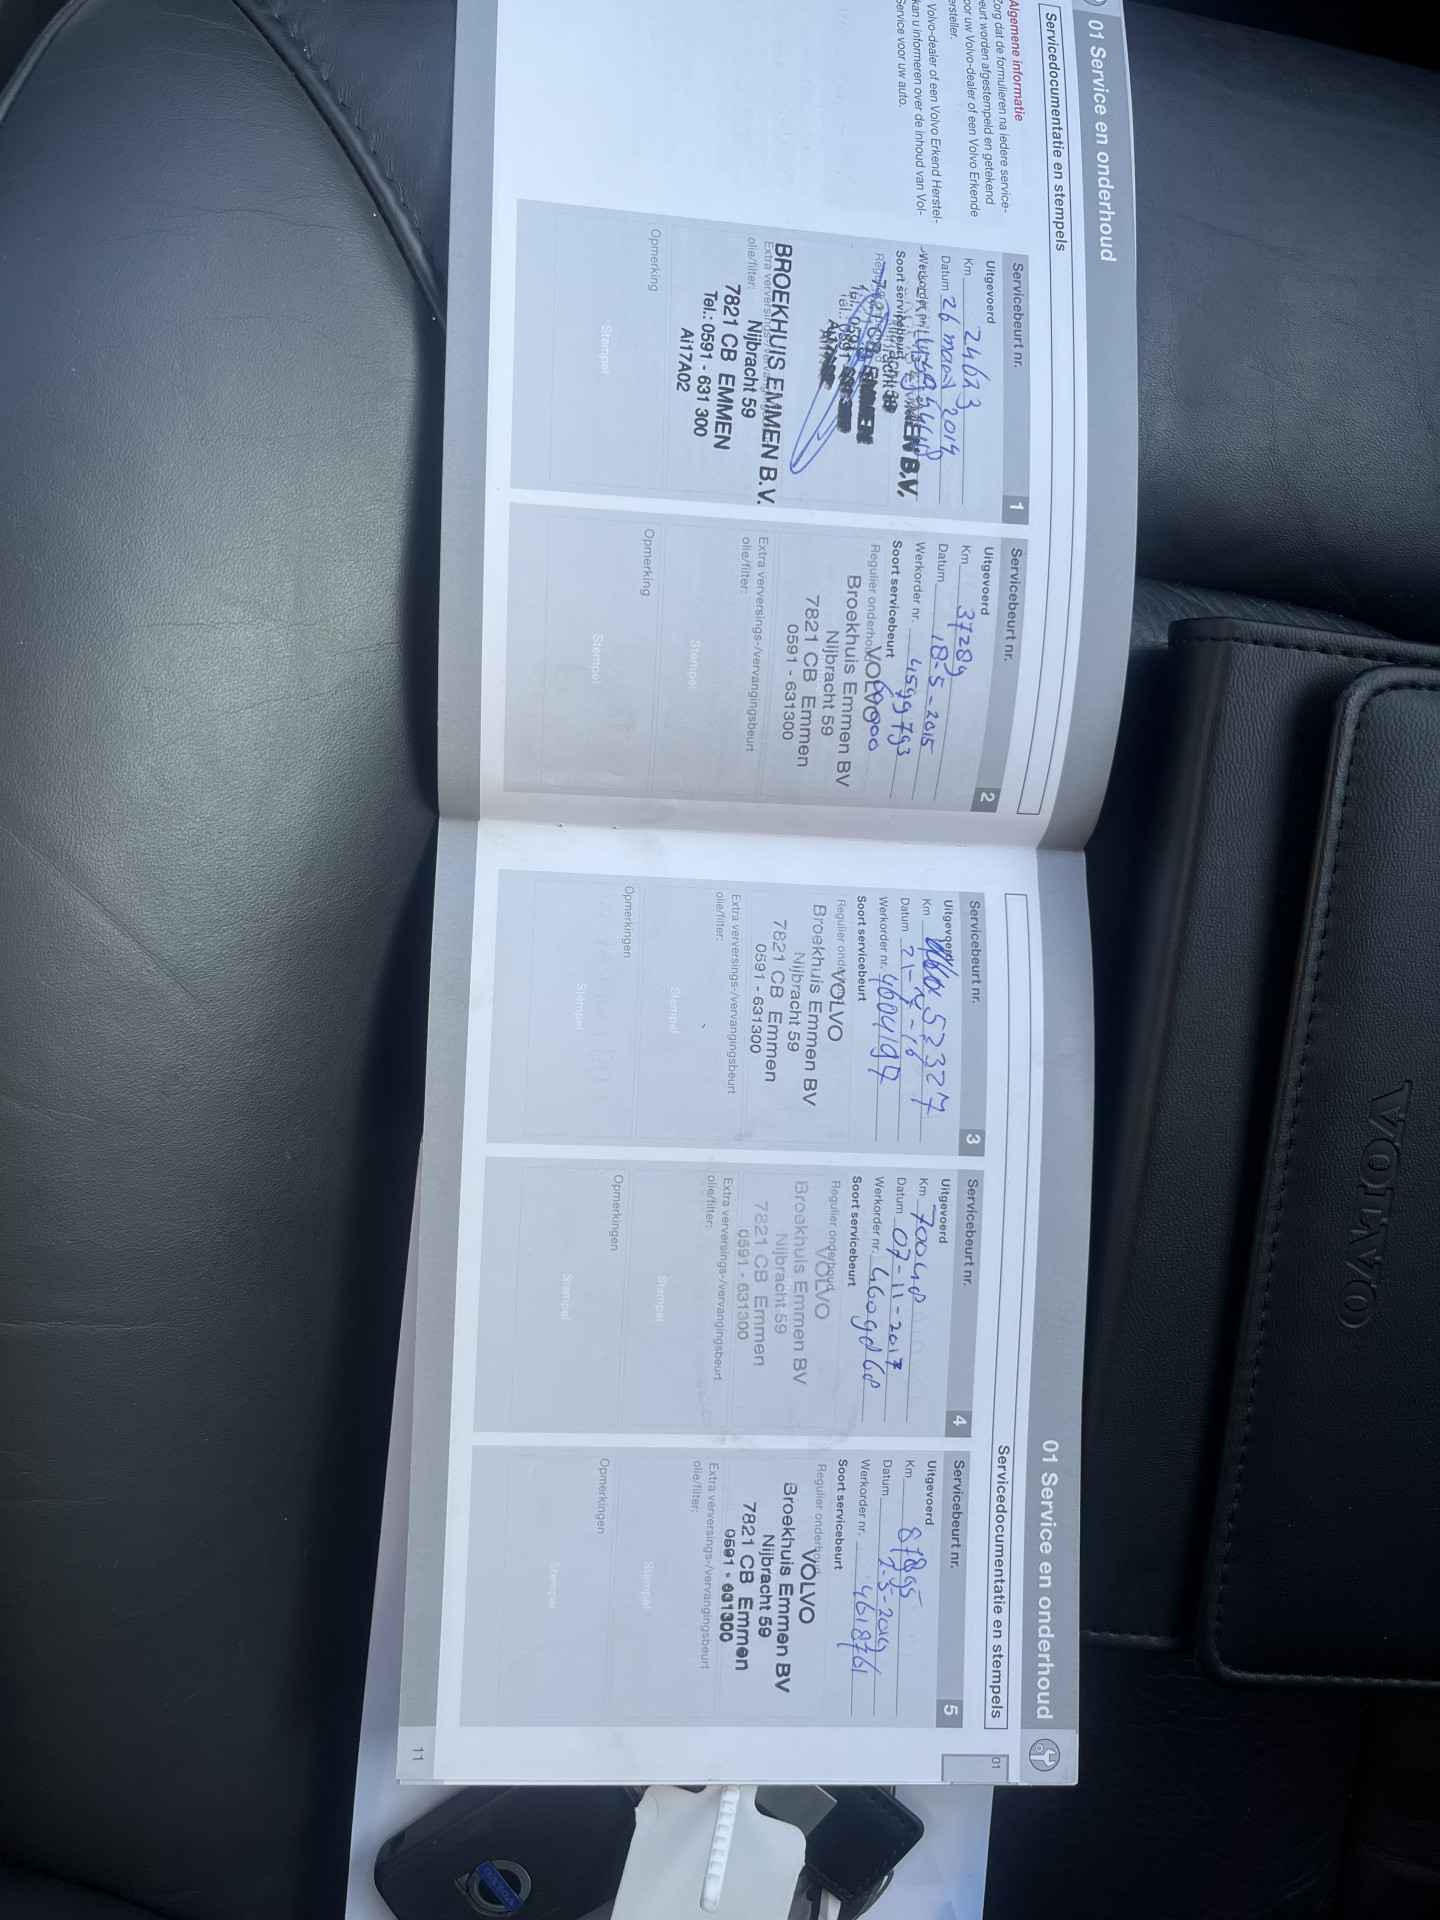 01 Service en onderhoud
Servicedocumentatie en stempels
Algemene informatie
Zorg dat de formulieren na iedere service-
beurt worden afgestempeld en getekend
door uw Volvo-dealer of een Volvo Erkende
Hersteller.
Volvo-dealer of een Volvo Erkend Herstel-
kan u informeren over de inhoud van Vol-
Service voor uw auto.
Servicebeurt nr. 1
Uitgevoerd
Km 24613
Datum 26 maart 2014
Werkorder nr.
Soort servicebeurt
BROEKHUIS EMMEN B.V.
Nijbracht 59
7821 CB EMMEN
Tel.: 0591 - 631 300
Ai17A02
Extra verversings-/vervangingsbeurt
olie/filter:
Opmerking
Stempel
Servicebeurt nr. 2
Uitgevoerd
Km 37289
Datum 18-5-2015
Werkorder nr. 4599793
Soort servicebeurt
Regulier onderhoud
VOLVO
Broekhuis Emmen BV
Nijbracht 59
7821 CB Emmen
0591 - 631300
Extra verversings-/vervangingsbeurt
olie/filter:
Stempel
Opmerking
Stempel
Servicebeurt nr. 3
Uitgevoerd
Km 52327
Datum
Werkorder nr. 4604197
Soort servicebeurt
Regulier onderhoud
VOLVO
Broekhuis Emmen BV
Nijbracht 59
7821 CB Emmen
0591 - 631300
Extra verversings-/vervangingsbeurt
olie/filter:
Stempel
Opmerkingen
Stempel
Servicebeurt nr. 4
Uitgevoerd
Km 70048
Datum 07-11-2017
Werkorder nr. 4609868
Soort servicebeurt
Regulier onderhoud
VOLVO
Broekhuis Emmen BV
Nijbracht 59
7821 CB Emmen
0591 - 631300
Extra verversings-/vervangingsbeurt
olie/filter:
Stempel
Opmerkingen
Stempel
01 Service en onderhoud
Servicedocumentatie en stempels
01
Servicebeurt nr. 5
Uitgevoerd
Km 87895
Datum 7-5-2019
Werkorder nr. 4618761
Soort servicebeurt
Regulier onderhoud
VOLVO
Broekhuis Emmen BV
Nijbracht 59
7821 CB Emmen
0591 - 631300
Extra verversings-/vervangingsbeurt
olie/filter:
Stempel
Opmerkingen
Stempel
11
VOLVO
VOLVO